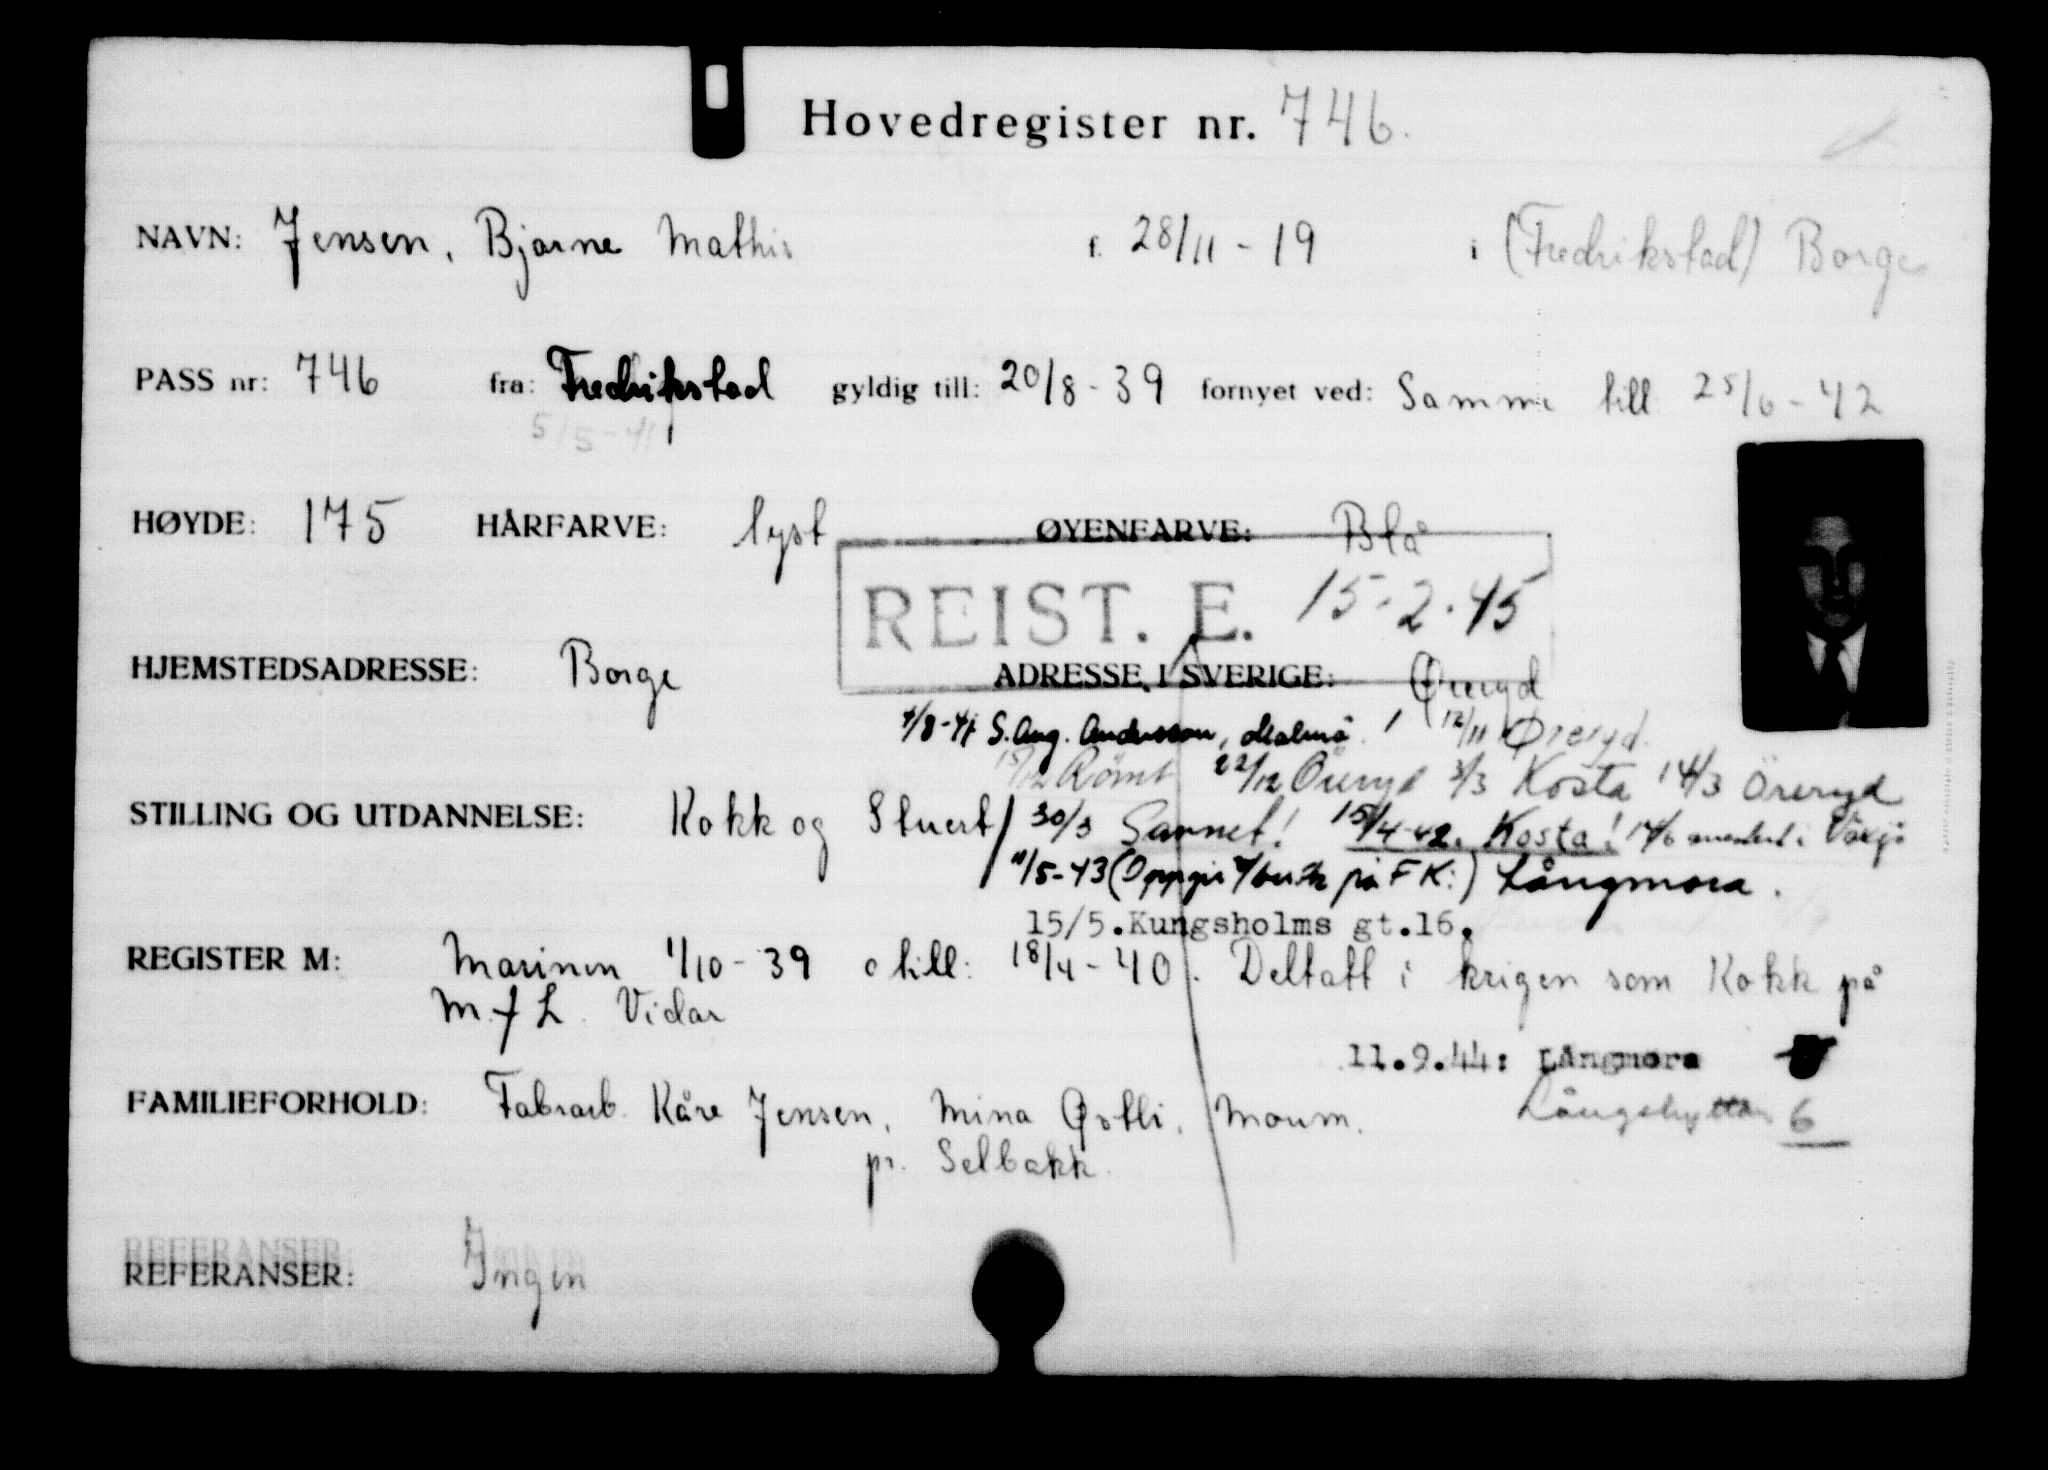 Hovedregister nr. 746.
NAVN: Jensen, Bjarne Mathis f. 28/11-19 i (Fredrikstad) Borge
PASS nr: 746 fra: Fredrikstad gyldig till: 20/8-39 fornyet ved: Samme till 25/6-42
5/5-41
HØYDE: 175 HÅRFARVE: lyst ØYENFARVE: Blå
REIST. E. 15-2-45
HJEMSTEDSADRESSE: Borge ADRESSE I SVERIGE: Øreryd
4/8-41 S. Aug. Andersson, Malmö. 12/11 Øreryd.
15/12 Rømt 22/12 Öreryd 3/3 Kosta 14/3 Öreryd
STILLING OG UTDANNELSE: Kokk og Stuert / 30/3 Savnet! 15/4-42. Kosta! 14/6 i Växjö
11/5-43 på F K:) Långmora.
15/5.Kungsholms gt.16.
REGISTER M: Marinen 1/10-39 o till: 18/4-40. Deltatt i krigen som Kokk på
M.f L. Vidar
11.9.44: Långmora
FAMILIEFORHOLD: Fabrarb. Kåre Jensen, Mina Østli, Moum. Långshyttan 6
pr. Selbakk.
REFERANSER: Ingen